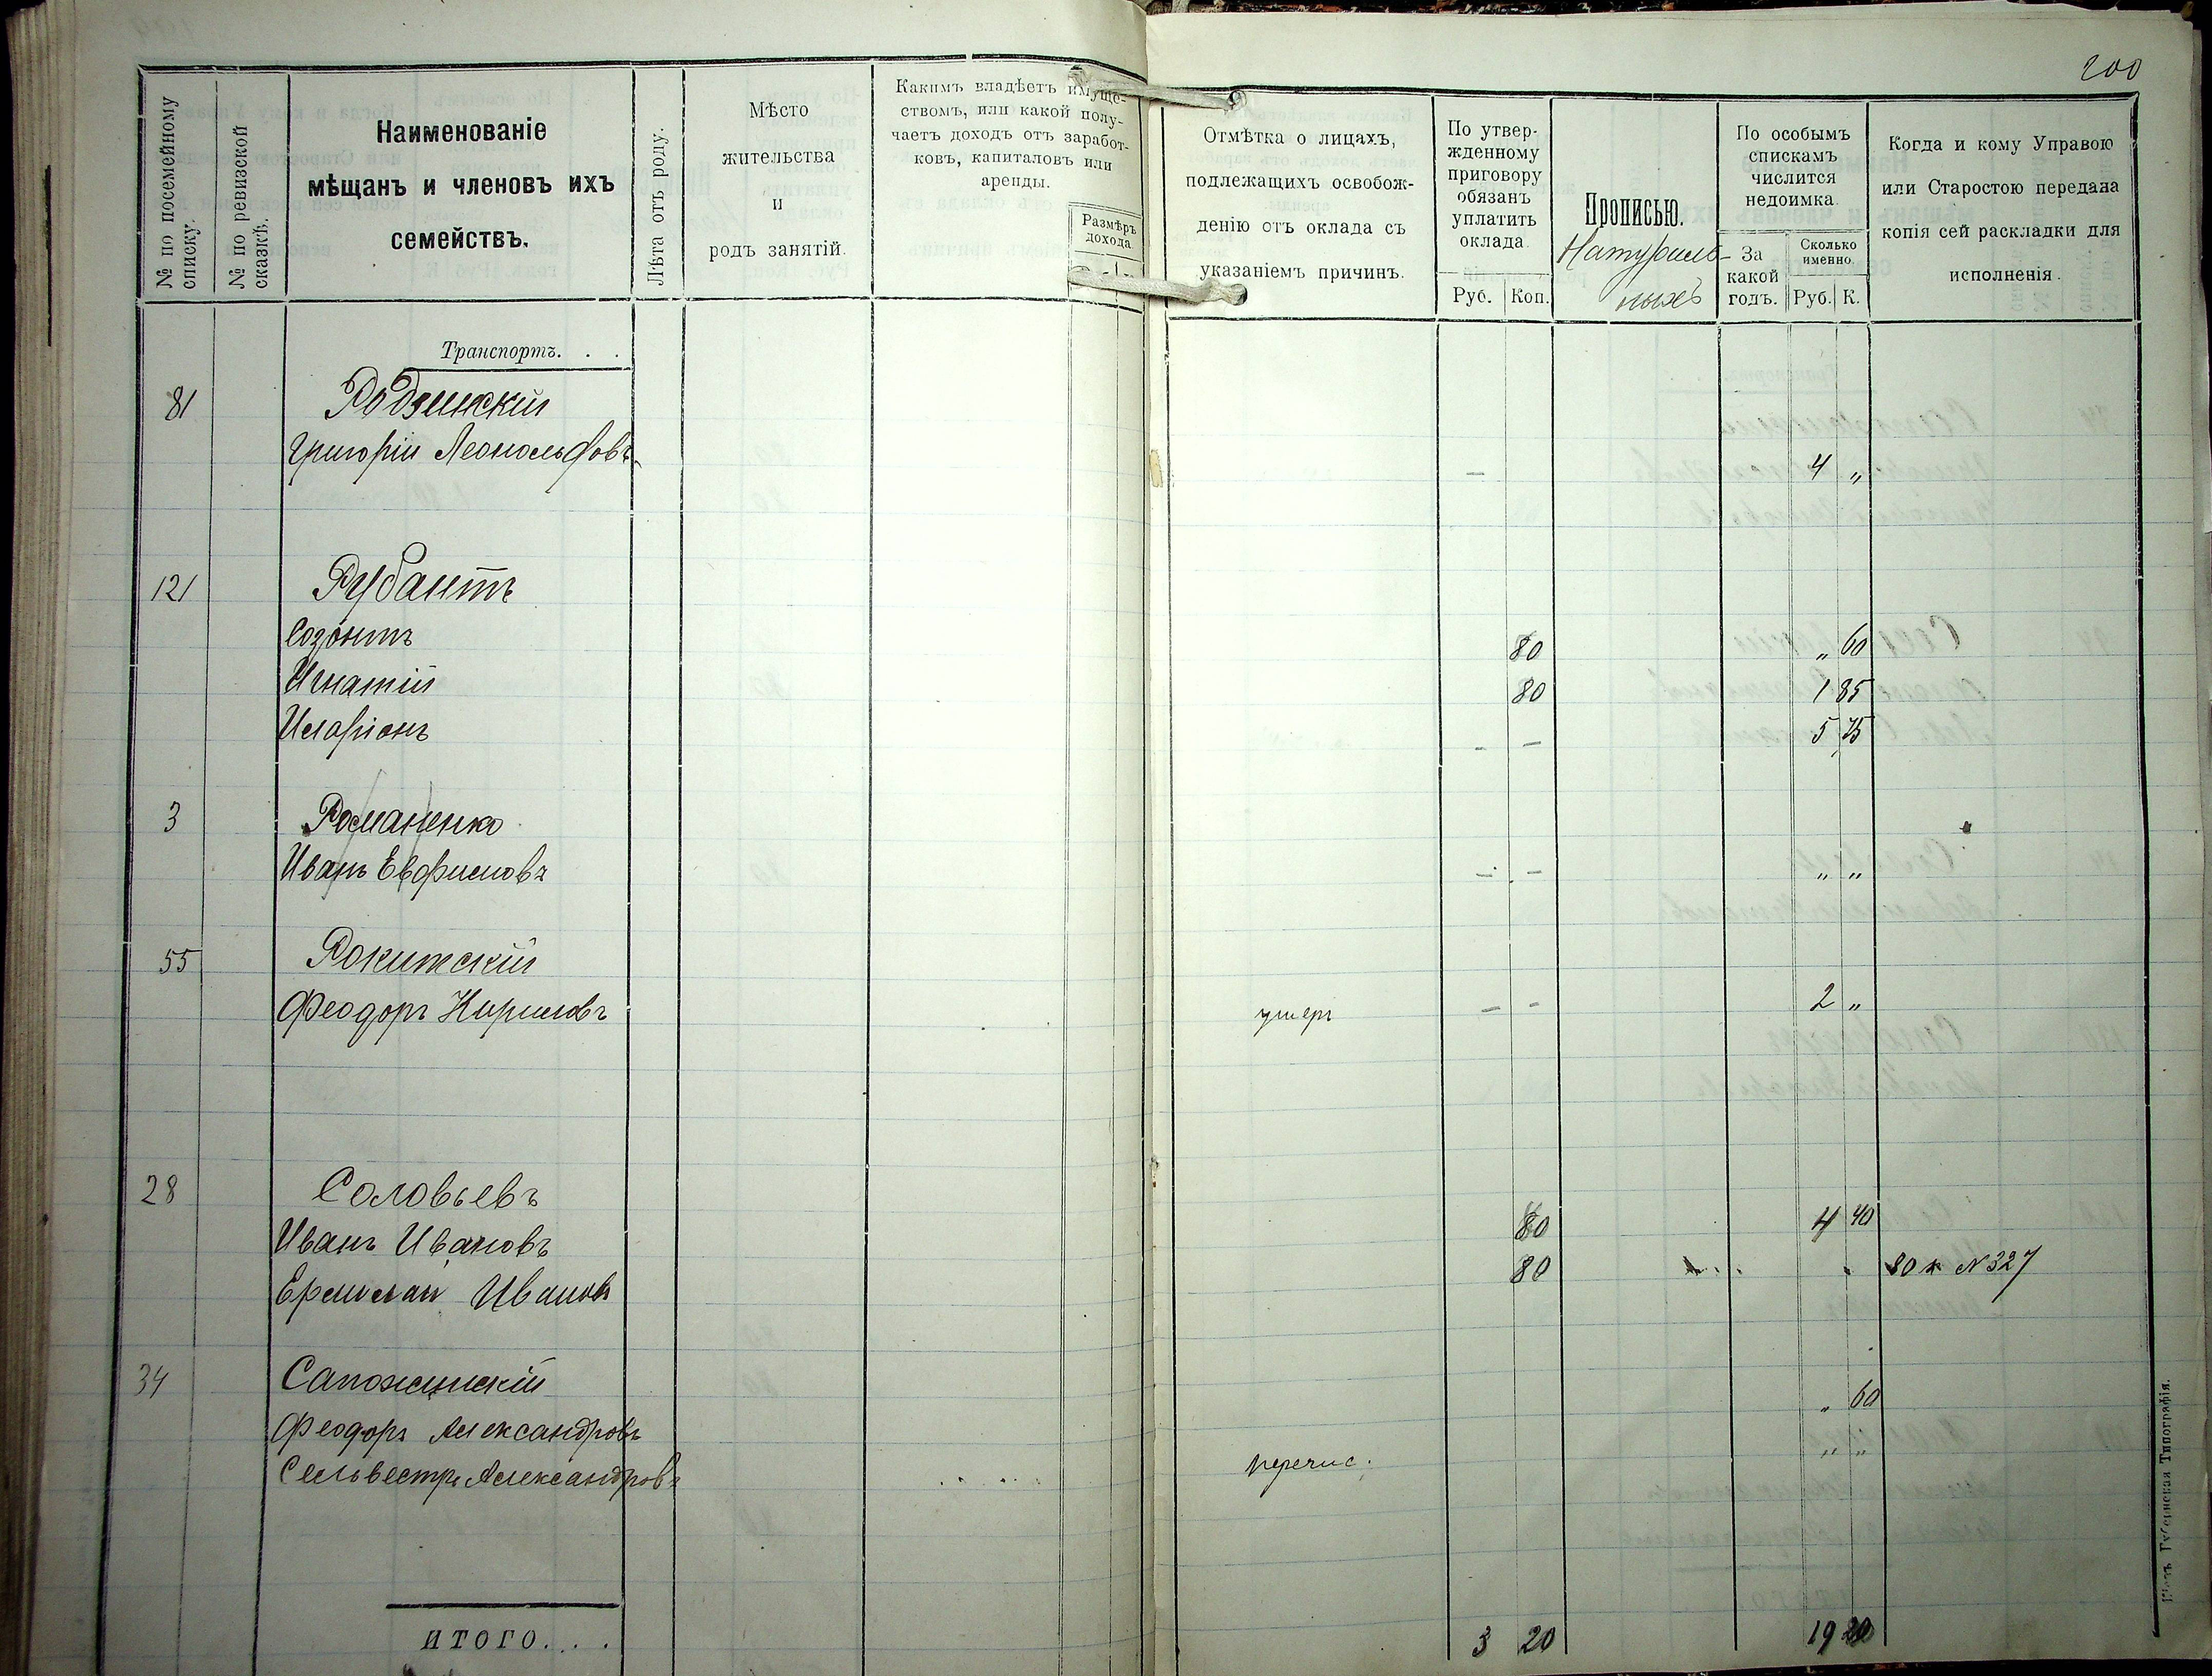 200
№ по посемейному списку.
№ по ревизской сказкѣ.
Наименованіе
мѣщанъ и членовъ ихъ
семействъ.
Лѣта отъ роду.
Мѣсто
жительства
и
родъ занятій.
Какимъ владѣетъ имуще-
ствомъ, или какой полу-
чаетъ доходъ отъ заработ-
ковъ, капиталовъ или
аренды.
Размѣръ
дохода
Отмѣтка о лицахъ,
подлежащихъ освобож-
денію отъ оклада съ
указаніемъ причинъ.
По утвер-
жденному
приговору
обязанъ
уплатить
оклада.
Руб. Коп.
Прописью.
Натураль-
ныхъ
По особымъ
спискамъ
числится
недоимка.
За
какой
годъ.
Сколько
именно.
Руб. К.
Когда и кому Управою
или Старостою передана
копія сей раскладки для
исполненія.
Транспортъ. . .
81 Родзинскій
Григорій — 4 „
121 Рубантъ
Созонтъ 80 „ 60
Игнатій 80 1 85
Иларіонъ - - 5 75
3 Романенко
Иванъ — - „ „
55 Рокитскій
Феодоръ Кириловъ умеръ — - 2 „
28 Соловьевъ
Иванъ Ивановъ 80 4 40
Ивановъ 80 80 к №327
34
Феодоръ Александровъ „ 60
Сельвестръ Александровъ перечис. „ „
ИТОГО. . . 3 20 19 20
Губернская Типографія.